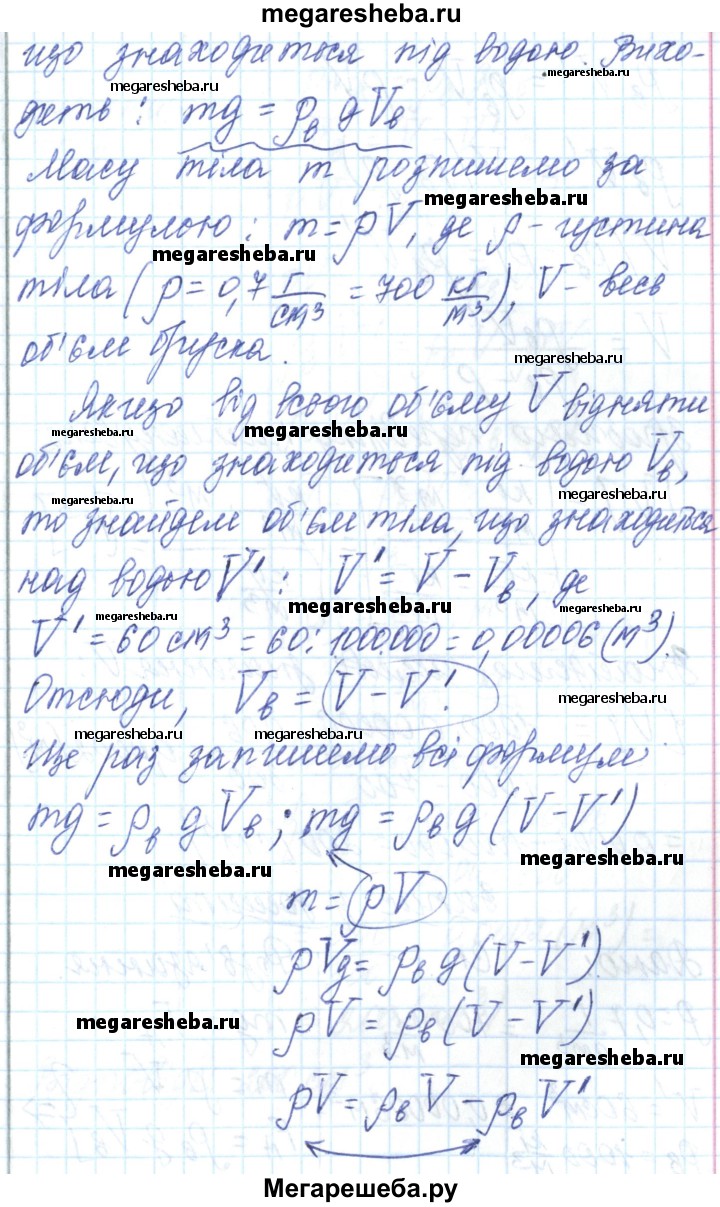 megaresheba.ru
що знаходиться під водою. Вихо-
megaresheba.ru megaresheba.ru
дить: mg = ρв g Vв
Масу тіла m розпишемо за
megaresheba.ru
формулою: m = ρV, де ρ - густина
megaresheba.ru
тіла (ρ = 0,7 г/см³ = 700 кг/м³), V - весь
об'єм бруска.
megaresheba.ru
Якщо від всього об'єму V відняти
megaresheba.ru megaresheba.ru
об'єм, що знаходиться під водою Vв,
megaresheba.ru megaresheba.ru
то знайдем об'єм тіла, що знаходиться
над водою V' : V' = V - Vв, де
megaresheba.ru megaresheba.ru megaresheba.ru
V' = 60 см³ = 60 : 1000.000 = 0,00006 (м³).
Отсюди, Vв = V - V'.
megaresheba.ru
megaresheba.ru megaresheba.ru
Ще раз запишемо всі формули
mg = ρв g Vв ; mg = ρв g (V - V')
megaresheba.ru megaresheba.ru
m = ρV
ρVg = ρв g (V - V').
megaresheba.ru
ρV = ρв (V - V')
megaresheba.ru
ρV = ρв V - ρв V'
Мегарешеба.ру